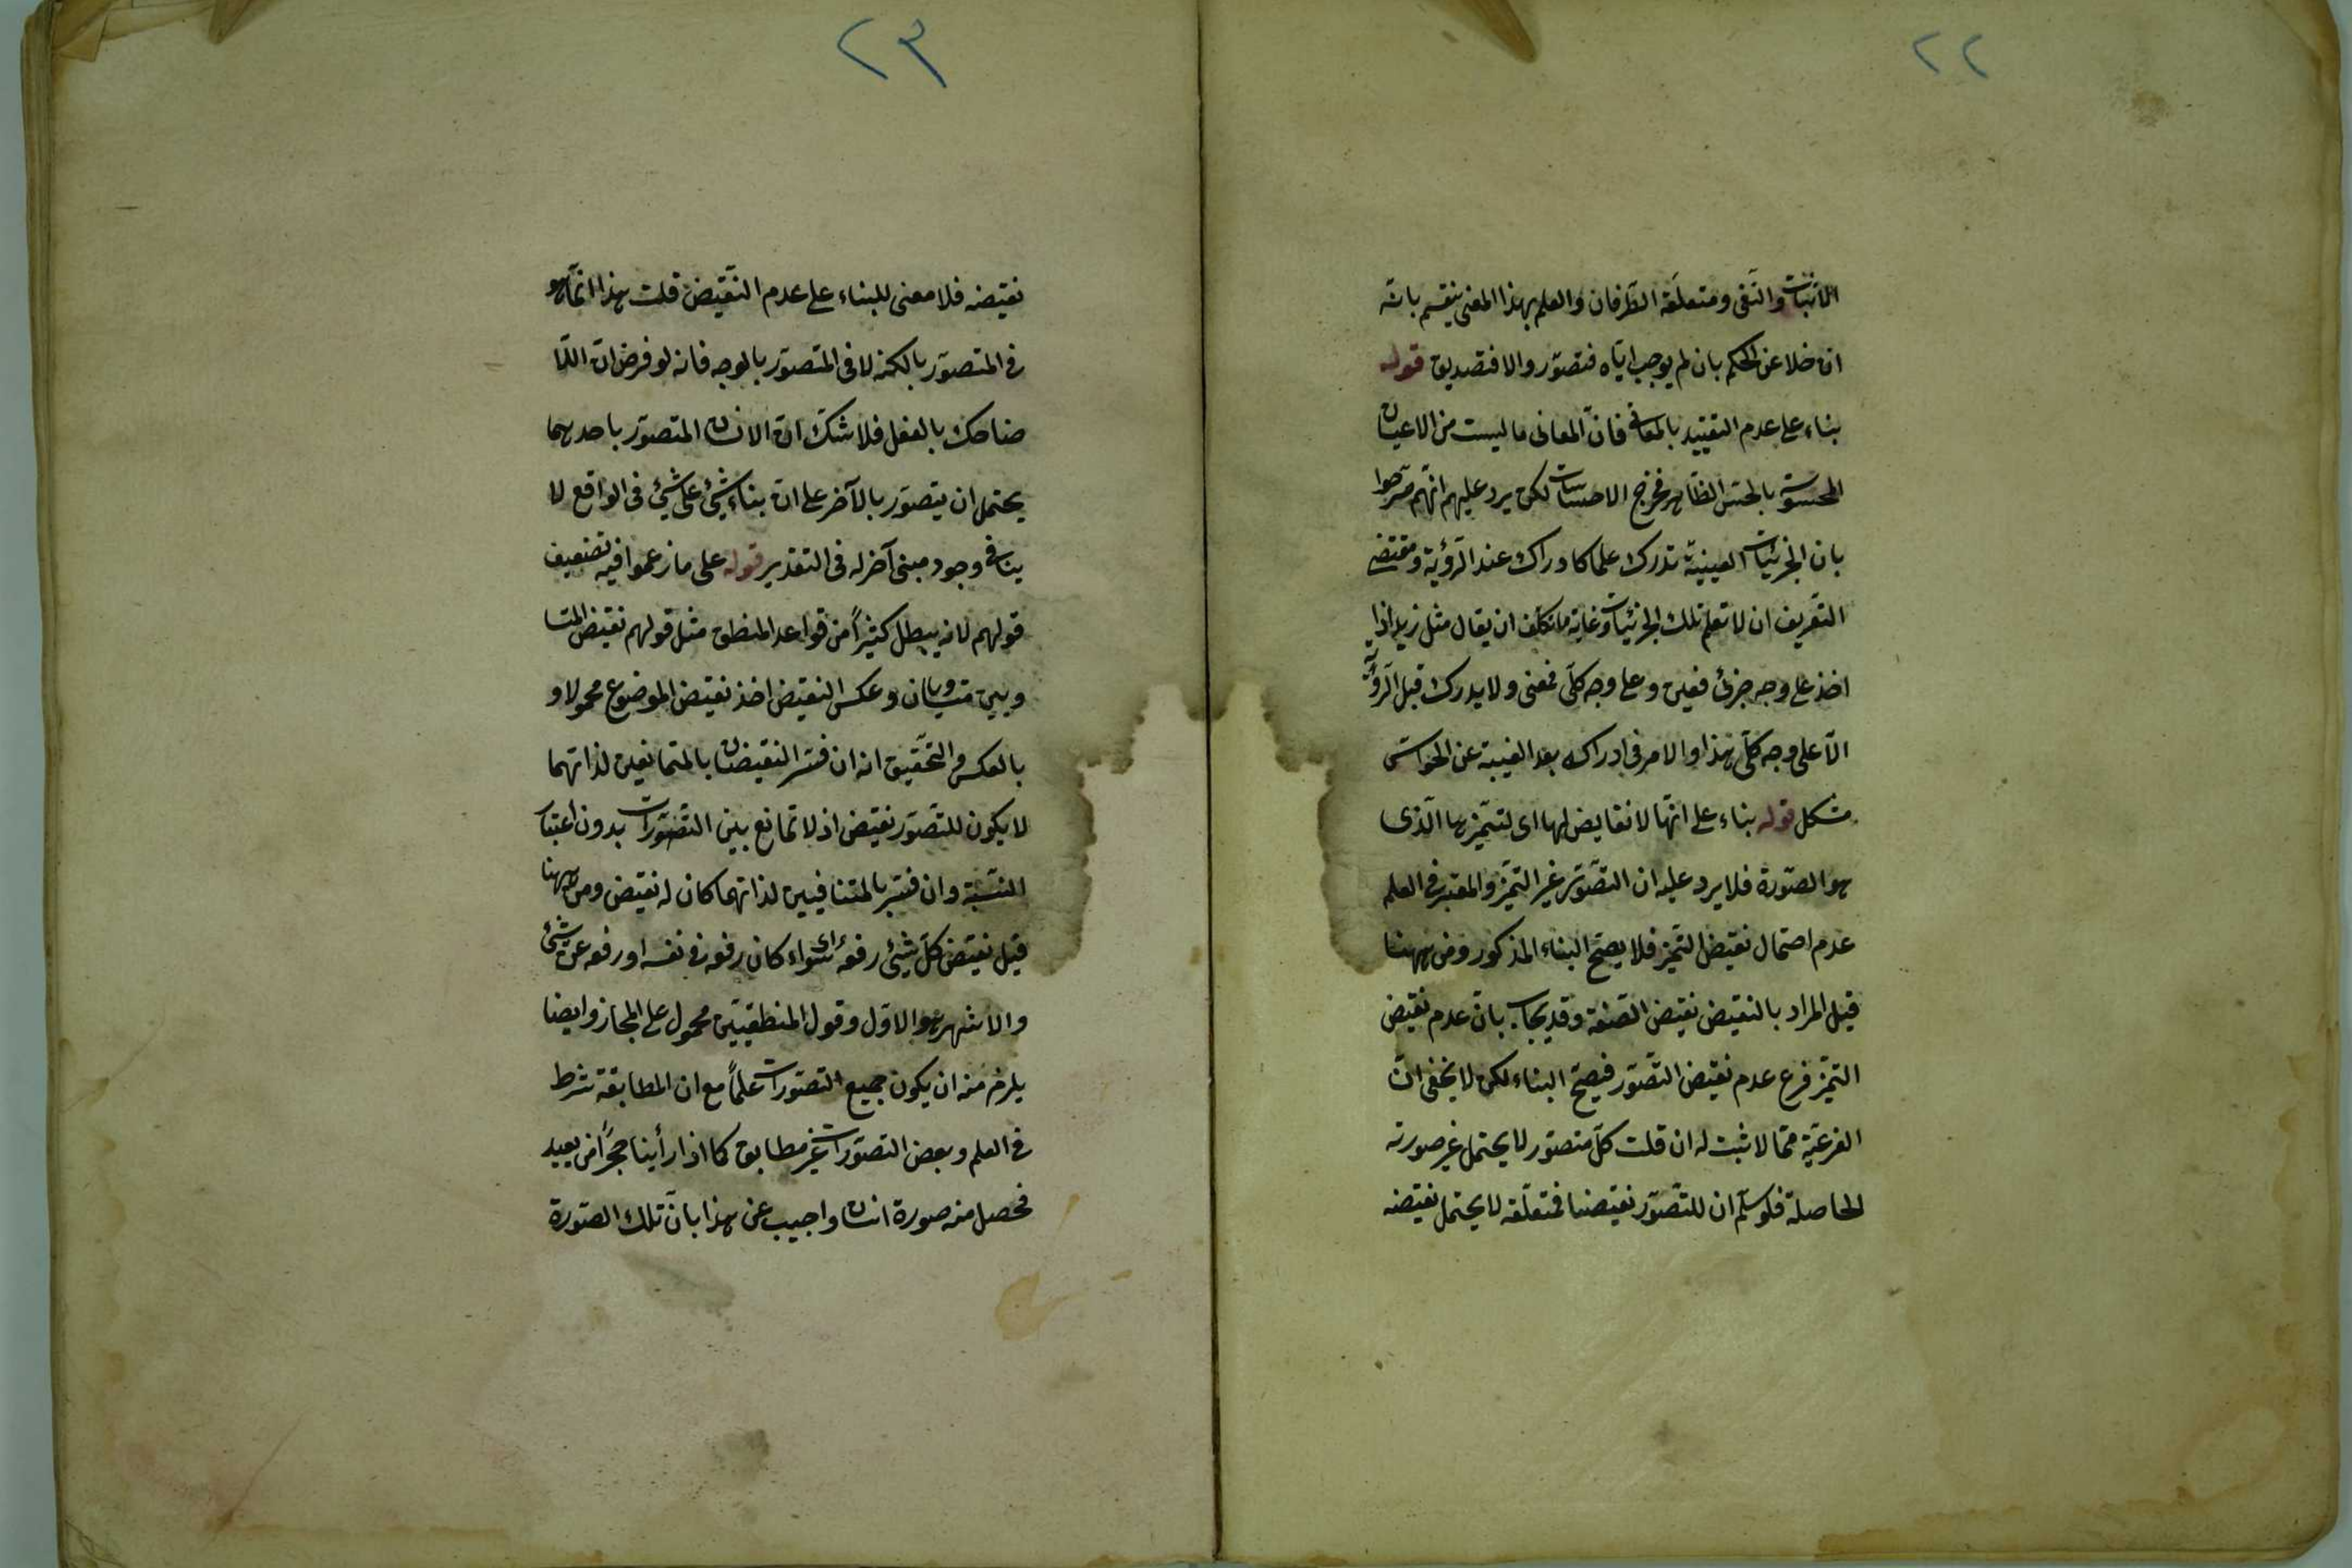 ٢٢
الاثبات والنفى ومتعلقه الطرفان والعلم بهذا المعنى ينقسم بانه
ان خلا عن الحكم بان لم يوجب اياه فتصوّر والا فتصديق قوله
بناء على عدم التقييد بالمعانى فانّ المعانى ما ليست من الاعيان
المحسوسة بالحسّ الظاهر فخرج الاحساسات لكن يرد عليهم انّهم صرّحوا
بان الجزئيات العينية تدرك علما كادراك عند الرّؤية ومقتضى
التّعريف ان لا تعلم تلك الجزئيات وغاية ما تكلف ان يقال مثل زيد اذا
اخذ على وجه جزئى فعين وعلى وجه كلّى فمعنى ولا يدرك قبل الرّؤية
الّا على وجه كلّى هذا والامر فى ادراك بعد الغيبة عن الحواسّ
مشكل قوله بناء على انّها لا نقايض لها اى لتميّزها الّذى
هو الصّورة فلا يرد عليه ان التّصوّر غير التميّز والمعتبر فى العلم
عدم احتمال نقيض التّميز فلا يصحّ البناء المذكور ومن ههنا
قيل المراد بالنقيض نقيض الصّفة وقد يجاب بانّ عدم نقيض
التميّز فرع عدم نقيض التّصوّر فيصحّ البناء لكن لا يخفى انّ
الفرعيّة ممّا لا ثبت له ان قلت كلّ متصوّر لا يحتمل غير صورته
الحاصلة فلو سلّم ان للتّصوّر نقيضا فمتعلّقه لا يحتمل نقيضه
٢٣
نقيضه فلا معنى للبناء على عدم النّقيض قلت هذا انّما هو
فى المتصوّر بالكنه لا فى المتصوّر بالوجه فانه لو فرض انّ اللا
ضاحك بالفعل فلا شكّ انّ الانسان المتصوّر باحدهما
يحتمل ان يتصوّر بالآخر على انّ بناء شئ على شئ فى الواقع لا
ينافى وجود مبنى آخر له فى التقدير قوله على ما زعموا فيه تضعيف
قولهم لانه يبطل كثيرًا من قواعد المنطق مثل قولهم نقيض المتسا
ويين متساويان وعكس النقيض اخذ نقيض الموضوع محمولا و
بالعكس والتّحقيق انه ان فسّر النقيضان بالمتمانعين لذاتهما
لا يكون للتصوّر نقيض اذ لا تمانع بين التصوّرات بدون اعتبار
النّسبة وان فسّر بالمتنافيين لذاتهما كان له نقيض ومن ههنا
قيل نقيض كلّ شئ رفعه اى سواء كان رفعه فى نفسه او رفعه عن شئ
والاشهر هو الاوّل وقول المنطقيّين محمول على المجاز وايضا
يلزم منه ان يكون جميع التصوّرات علمًا مع ان المطابقة شرط
فى العلم وبعض التصوّرات غير مطابق كما اذا رأينا حجرًا من بعيد
فحصل منه صورة انسان واجيب عن هذا بانّ تلك الصّورة